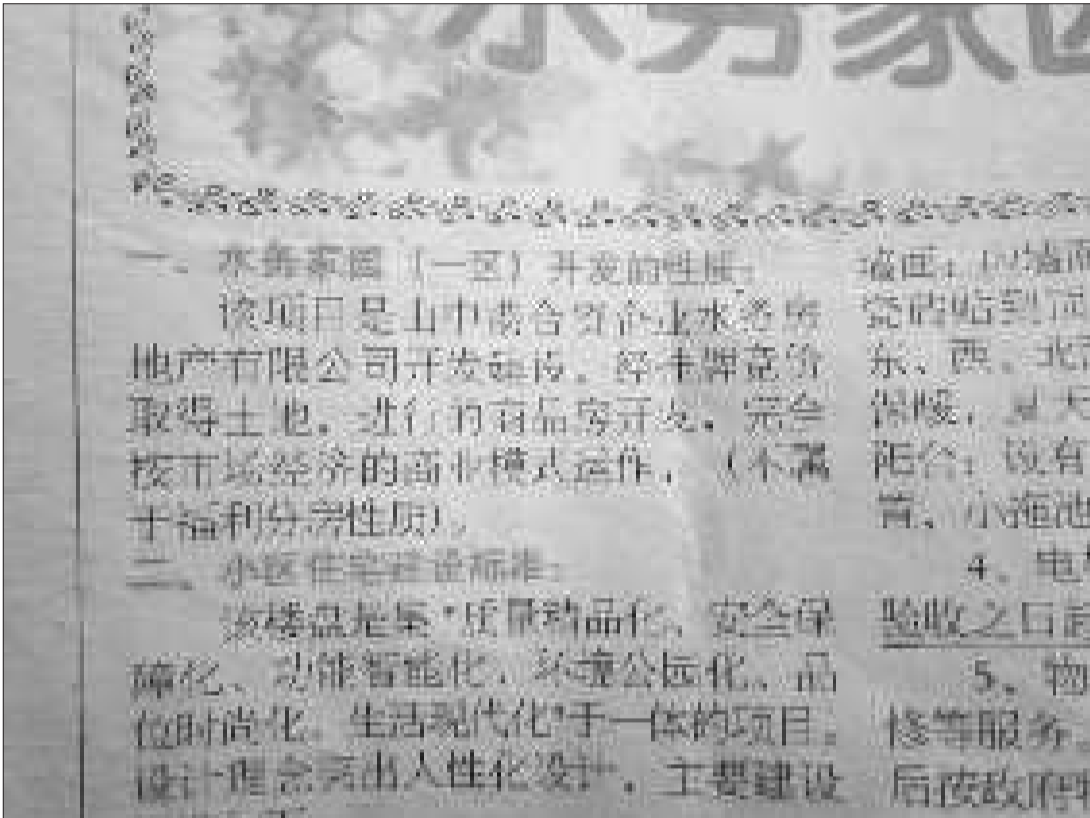 水务家园
一、水务家园（一区）开发的性质：
该项目是由中外合资企业水务房
地产有限公司开发建设，经挂牌竞价
取得土地，进行的商品房开发，完全
按市场经济的商业模式运作，（不属
于福利分房性质）。
二、小区住宅建设标准：
该楼盘是集“质量精品化、安全保
障化、功能智能化、环境公园化、品
位时尚化、生活现代化”于一体的项目，
设计理念突出人性化设计，主要建设
墙面：内墙面
瓷砖贴到顶
东、西、北
保暖，夏天
阳台：设有
管、小拖池
4、电
验收之后
5、物
修等服务，
后按政府